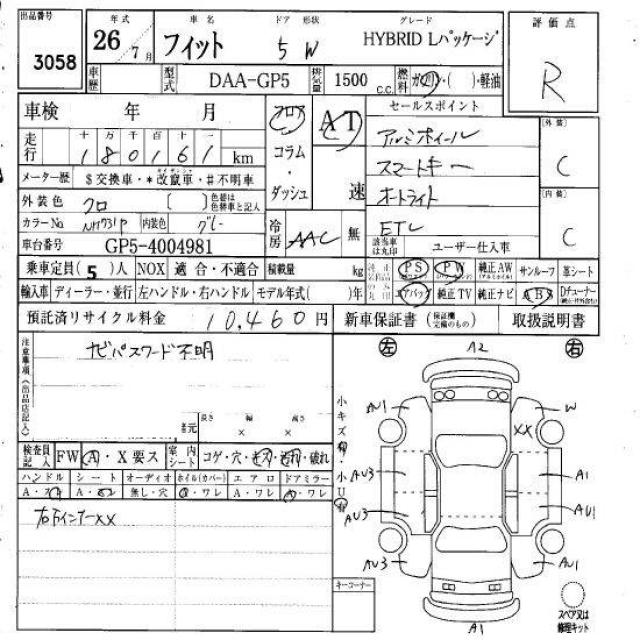 出品番号 年式 車名 ドア 形状 グレード 評価点
3058 26/7月 フィット 5 W HYBRID Lパッケージ R
車歴 型式 DAA-GP5 排気量 1500 c.c. 燃料 ガソリン・( )・軽油
車検 年 月 フロア AT セールスポイント [外装]
走行 十 万 千 百 十 一 コラム アルミホイール C
1 8 0 1 6 1 km スマートキー
メーター歴 $交換車・*改竄車・#不明車 ・ダッシュ 速 オートライト [内装]
外装色 クロ [ ] 色替は色替車と記入 ETC C
カラーNo. NH731P 内装色 グレー 冷房 AAC 無 該当車は丸印 ユーザー仕入車
車台番号 GP5-4004981
乗車定員(5)人 NOX 適合・不適合 積載量 kg PS PW 純正AW サンルーフ 革シート
輸入車 ディーラー・並行 左ハンドル・右ハンドル モデル年式( )年 エアバック 純正TV 純正ナビ ABS
預託済リサイクル料金 10,460円 新車保証書(保証欄完備のもの) 取扱説明書
注意事項(出品店記入) ナビパスワード不明
左 A2 右
諸元 長さ 幅 高さ
× ×
検査員記入 FW A・X要ス 室内シート コゲ・穴・キズ・汚れ・破れ
ハンドル シート オーディオ ホイル(カバー) エアロ ドアミラー
A・ス A・ 無し・穴 ・ワレ A・ワレ A・ワレ
右FインナーXX
小キズ有・小U有
AU1 W
XX
AU3 A1
AU3 AU1
AU3 AU1
A1
キーコーナー
スペア又は修理キット